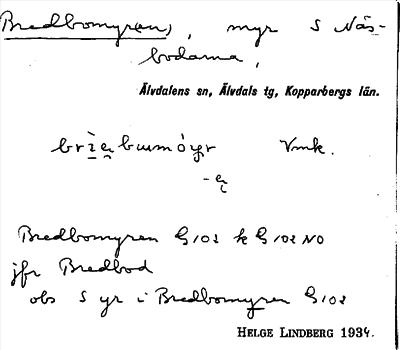 Bredbomyr(en), myr S Näs-
bodarna,
Älvdalens sn, Älvdals tg, Kopparbergs län.
Vmk.
Bredbomyren G 102 k G 102 NO
jfr Bredbod
obs S yr i Bredbomyren G 102
HELGE LINDBERG 1934.